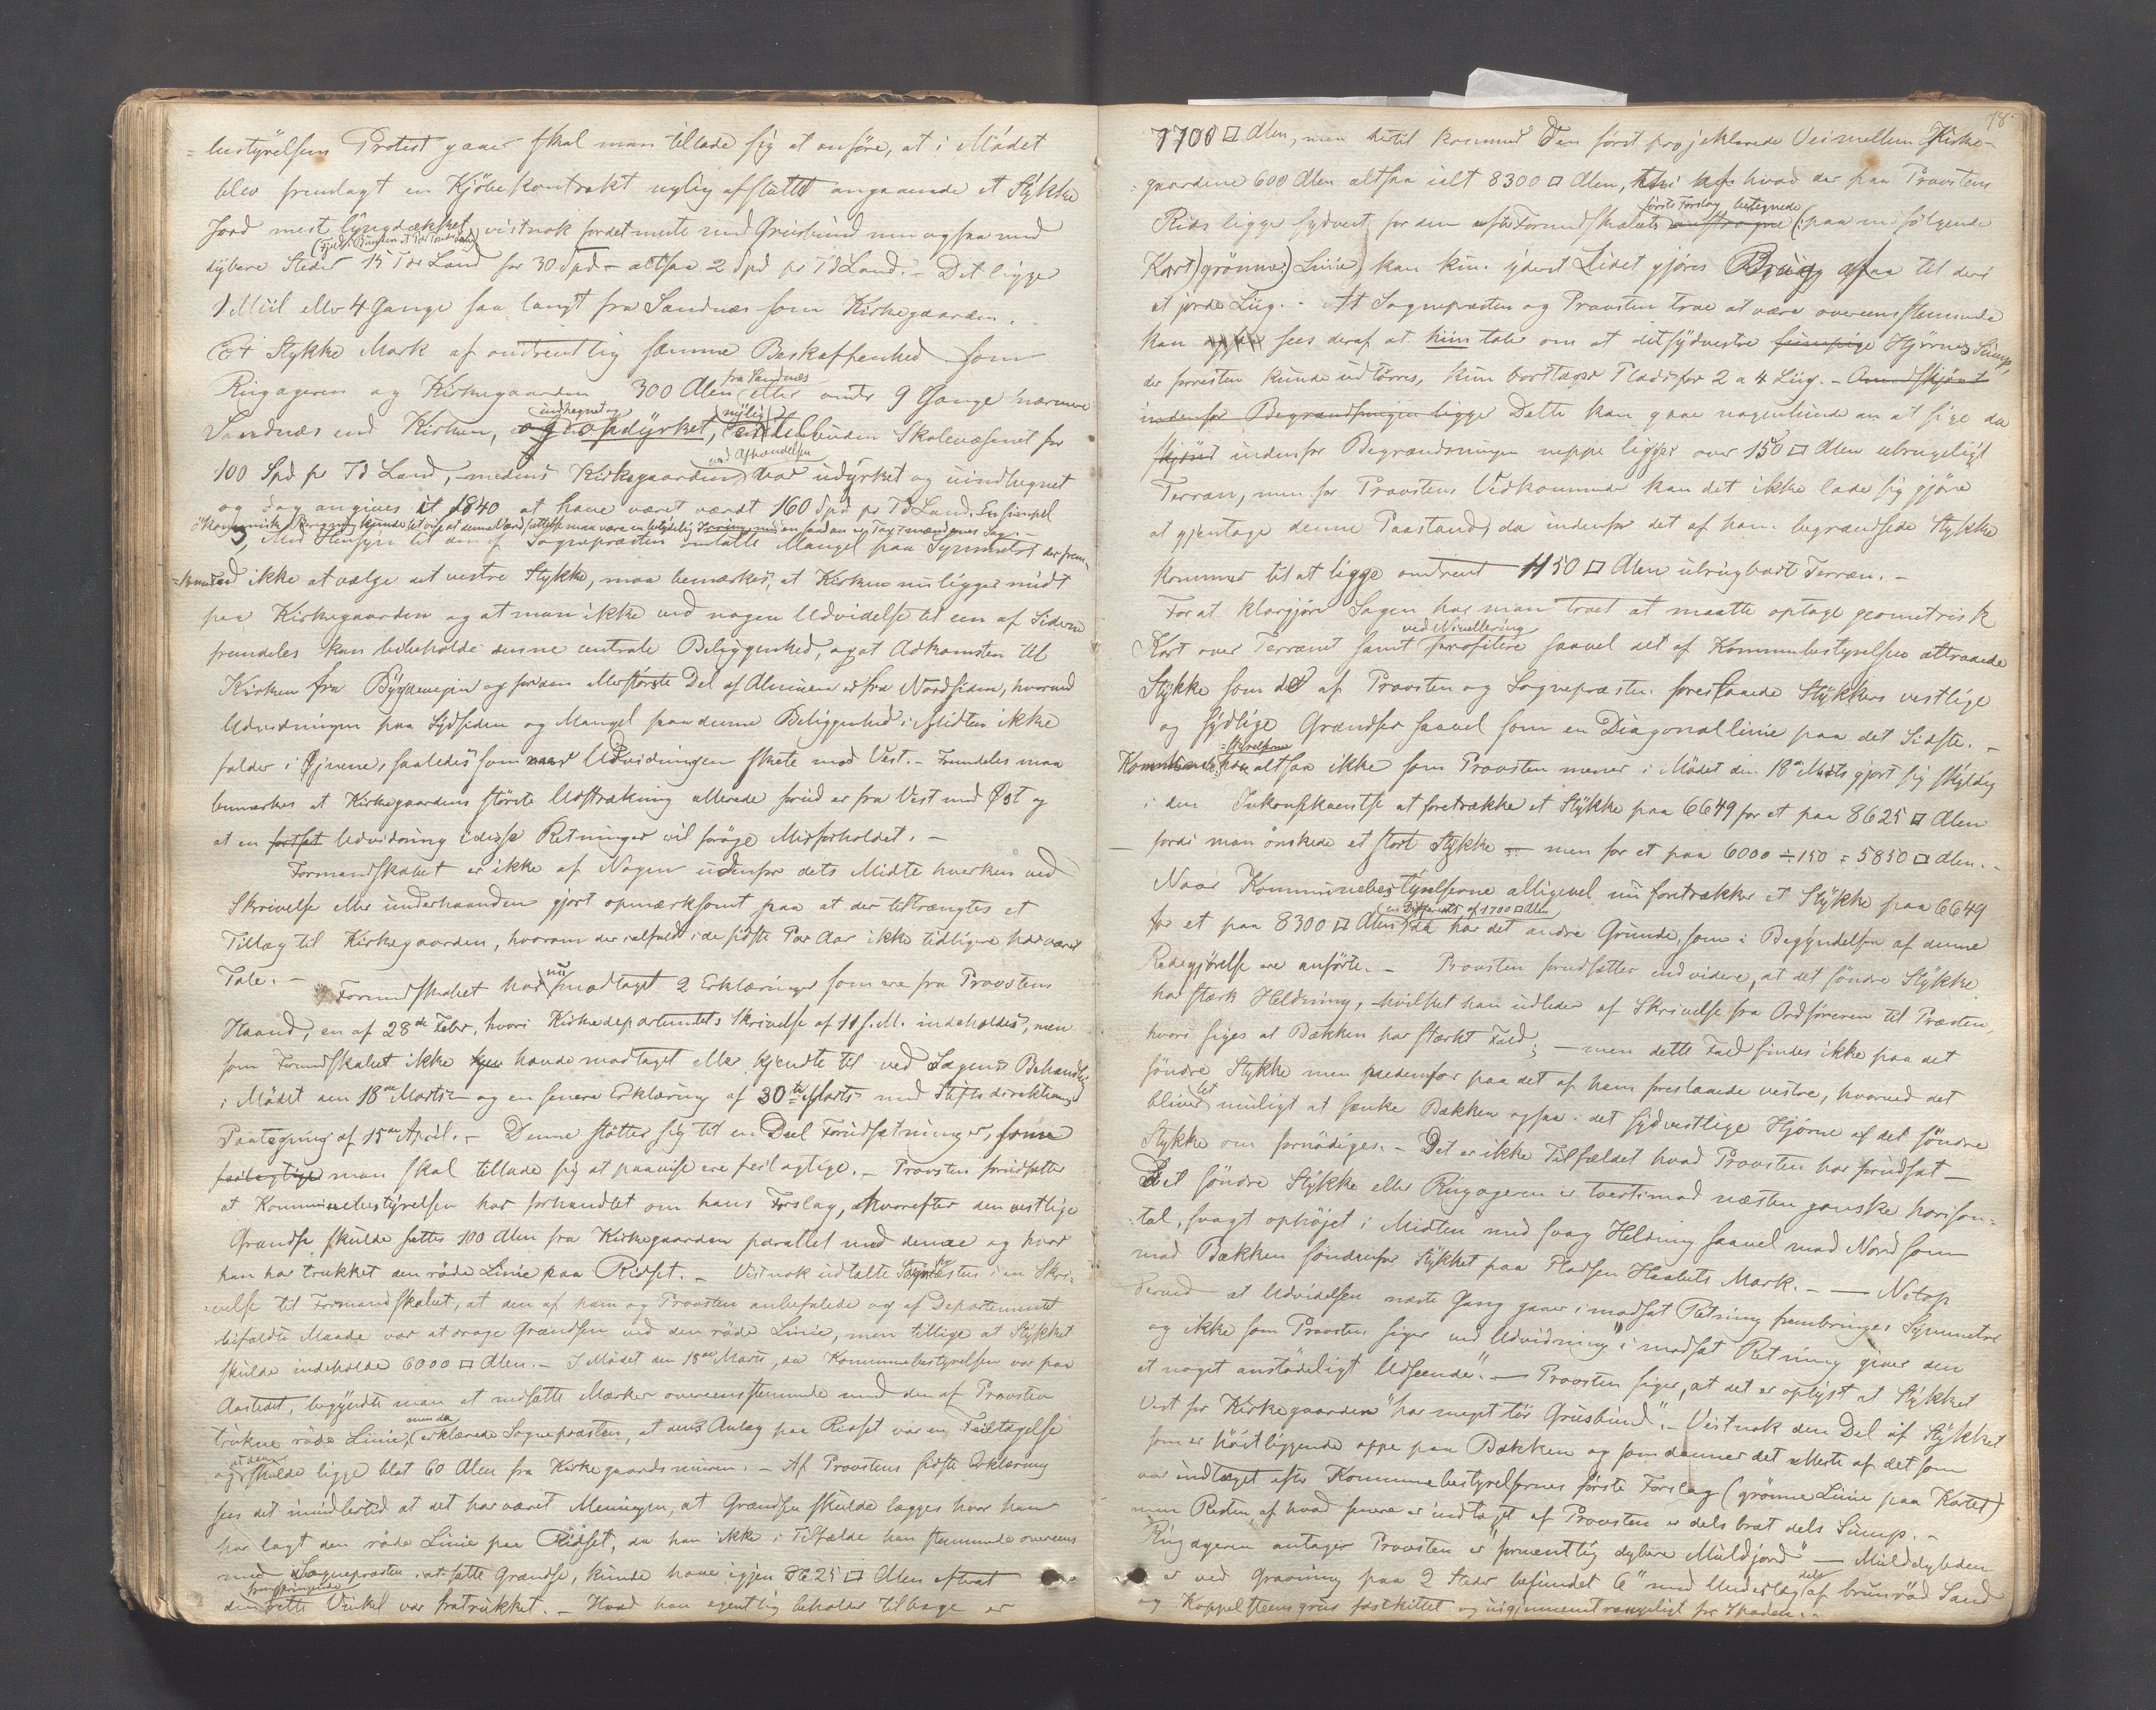 =bestyrelsens Protest gaaer skal man tillade sig at anføre, at i Mødet
blev fremlagt en Kjøbekontrakt nylig afsluttet angaaende et Stykke
Jord mest lyngdækket, vistnok fordetmeste med Gruusbund men ogsaa med
dybere Steder 15 Tdr Land for 30 Spd – altsaa 2 Spd pr Td Land. – Det ligger
1 Miil eller 4 Gange saa langt fra Sandnæs som Kirkegaarden.
Et Stykke Mark af omtrentlig samme Beskaffenhed som
Ringageren og Kirkegaarden 300 Alen fra Sandnæs eller omtr 9 Gange nærmere
Sandnæs end Kirken, indhegnet og opdyrket, er nylig tilbuden Skolevæsenet for
100 Spd pr Td Land, – medens Kirkegaarden ved Afhændelsen var udyrket og uindhegnet
og dog angives i 1840 at have været værdt 160 Spd pr Td Land. En simpel
økonomisk Beregning
3, Med Hensyn til den af Sognepræsten omtalte Mangel paa Symmetri der frem-
=kommer ved ikke at vælge det vestre Stykke, maa bemærkes, at Kirken nu ligger midt
paa Kirkegaarden og at man ikke ved nogen Udvidelse til en af Siderne
fremdeles kan bibeholde denne centrale Beliggenhed, og at Adkomsten til
Kirken fra Bygdeveien og for den allerstørste Del af Almuen er fra Nordsiden, hvorved
Udvidningen paa Sydsiden og Mangel paa denne Beliggenhed i Midten ikke
falder i Øjnene, saaledes som naar Udvidningen skete mod Vest. – Fremdeles maa
bemærkes at Kirkegaardens største Udstrækning allerede forud er fra Vest mod Øst og
at en fortsat Udvidning i disse Retninger vil forøge Misforholdet. –
Formandskabet er ikke af Nogen udenfor dets Midte hverken ved
Skrivelse eller underhaanden gjort opmærksomt paa at der tiltrængtes et
Tillæg til Kirkegaarden, hvorom der ialfald i de sidste Par Aar ikke tidligere har været
Tale. –
Formandskabet har nu modtaget 2 Erklæringer som ere fra Provstens
Haand, en af 28de Febr. hvori Kirkedepartementets Skrivelse af 11 s. M. indeholdes, men
som Formandskabet ikke havde modtaget eller kjendte til ved Sagens Behandling
i Mødet den 18de Marts – og en senere Erklæring af 30te Marts med Stiftsdirektionens
Paategning af 15de April. – Denne støtter sig til en Deel Forudsætninger, som
feilagtige man skal tillade sig at paavise ere feilagtige. – Provsten forudsætter
at Kommunebestyrelsen har forhandlet om hans Forslag, hvorefter den vestlige
Grændse skulde sættes 100 Alen fra Kirkegaarden parallel med denne og hvor
han har trukket den røde Linie paa Ridset. – Vistnok udtalte Sognepræsten i en Skri-
velse til Formandskabet, at den af ham og Provsten anbefalede og af Departementet
bifaldte Maade var at drage Grændsen ved den røde Linie, men tillige at Stykket
skulde indeholde 6000 □ Alen. – I Mødet den 18de Marts, da Kommunebestyrelsen var paa
Aastedet, begyndte man at nedsætte Mærker overeensstemmende med den af Provsten
trukne røde Linie, men da erklærede Sognepræsten, at dens Anlæg paa Ridset var en Feiltagelse
og at den skulde ligge blot 60 Alen fra Kirkegaardsmuren. – Af Provstens sidste Erklæring
sees det imidlertid at det har været Meningen, at Grændsen skulde lægges hvor han
har lagt den røde Linie paa Ridset, da han ikke i Tilfælde han stemmende overeens
med Sognepræsten at sætte Grændse, kunde have igjen 8625 □ Alen efterat
den fremspringende rette Vinkel var fratrukket. – Hvad han egentlig beholder tilbage er
78
7700 □ Alen, men hertil kommer Den først projekterede Vei mellem Kirke-
gaardene 600 Alen altsaa ialt 8300 □ Alen, thi hvad der paa Provstens
Rids ligger sydvest for den efter Formandskabets første Forslag betegnede (: paa medfølgende
Kort) grønne) Linie, kan kun yderst Lidet gjøres Brug af til deri
at jorde Liig. – At Sognepræsten og Provsten troe at være overeensstemmende
kan sees deraf at hiin taler om at det sydvestre sumpige Hjørnes Sump,
der forresten kunde udtørres, kun borttager Plads for 2 a 4 Liig. – Omendskjønt
indenfor Begrændsningen ligger Dette kan gaae nogenlunde an at sige da
skjønt indenfor Begrændsningen neppe ligger over 150 □ Alen ubrugeligt
Terræn, men for Provstens Vedkommende kan det ikke lade sig gjøre
at gjentage denne Paastand, da indenfor det af ham begrændsede Stykke
kommer til at ligge omtrent 1150 □ Alen ubrugbart Terræn. –
For at klargjøre Sagen har man troet at maatte optage geometrisk
Kort over Terrænet samt ved Nivellering profilere saavel det af Kommunebestyrelsen attraaede
Stykke som det af Provsten og Sognepræsten foreslaaede Stykkes vestlige
og sydlige Grændser saavel som en Diagonallinie paa det Sidste. –
Kommunebestyrelserne have altsaa ikke som Provsten mener i Mødet den 18de Marts gjort sig skyldig
i den Inkonsekventse at foretrække et Stykke paa 6649 for et paa 8625 □ Alen
fordi man ønskede et stort Stykke – men for et paa 6000 ÷ 150 = 5850 □ Alen. –
Naar Kommunebestyrelserne alligevel nu foretrækker et Stykke paa 6649
for et paa 8300 □ Alen (en Differents af 1700 □ Alen) da har det andre Grunde, som i Begyndelsen af denne
Redegjørelse ere anførte. – Provsten forudsætter endvidere, at det søndre Stykke
har stærk Heldning, – hvilket han udleder af Skrivelse fra Ordføreren til Præsten,
hvori siges at Bækken har stærkt Fald; – men dette Fald findes ikke paa det
søndre Stykke men nedenfor paa det af ham foreslaaede vestre, hvorved det
bliver let muligt at sænke Bækken ogsaa i det sydvestlige Hjørne af det søndre
Stykke om fornødiges. – Det er ikke Tilfældet hvad Provsten har forudsat –
Det søndre Stykke eller Ringageren er tvertimod næsten ganske horison=
tal, svagt ophøjet i Midten med svag Heldning saavel mod Nord som
mod Bækken søndenfor Stykket paa Pladsen Haabets Mark. – — Netop
derved at Udvidelsen næste Gang gaaer i modsat Retning frembringes Symmetri
og ikke som Provsten siger ved Udvidning "i modsat Retning giver den
et noget anstødeligt Udseende". — Provsten siger, at det er oplyst at Stykket
Vest for Kirkegaarden "har meget tør Gruusbund". – Vistnok den Del af Stykket
som er høitliggende oppe paa Bakken og som danner det Meste af det som
var indtaget efter Kommunebestyrelsernes første Forslag (grønne Linie paa Kartet)
men Resten af hvad senere er indtaget af Provsten er dels brat dels Sump. –
Ringageren antager Provsten er "formentlig dybere Muldjord" — Mulddybden
er ved Gravning paa 2 Steder befundet 6" med Underlag dels af brunrød Sand
og Koppelsteensgrus fastkittet og uigjennemtrængeligt for Spaden. –